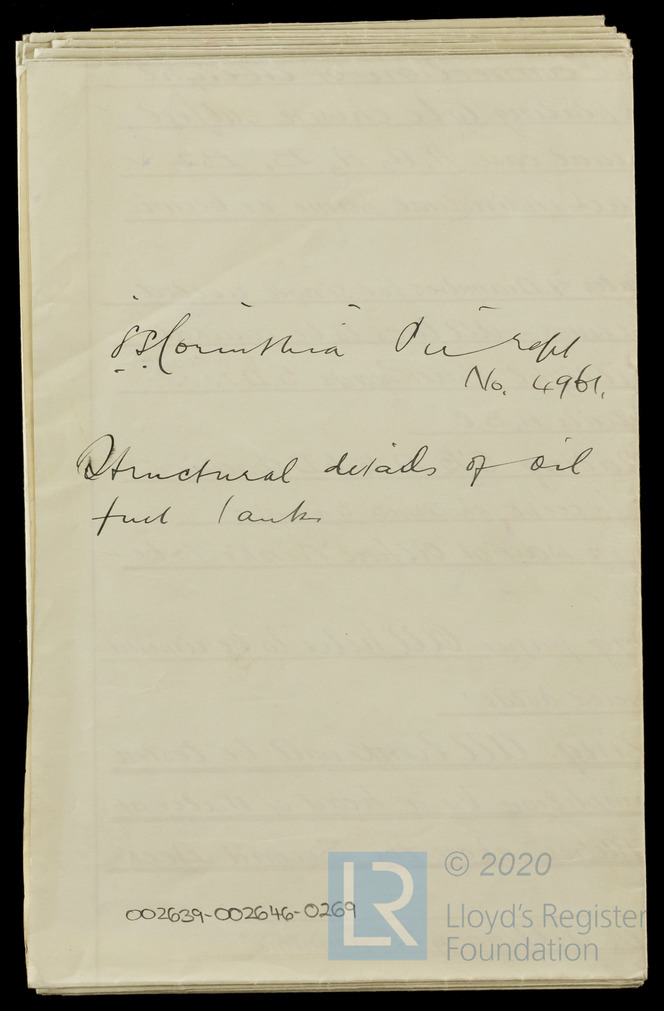 SS Corinthia Dis rept
No. 4961.
Structural details of oil
fuel tanks
002639-002646-0269
LR
© 2020
Lloyd's Register
Foundation